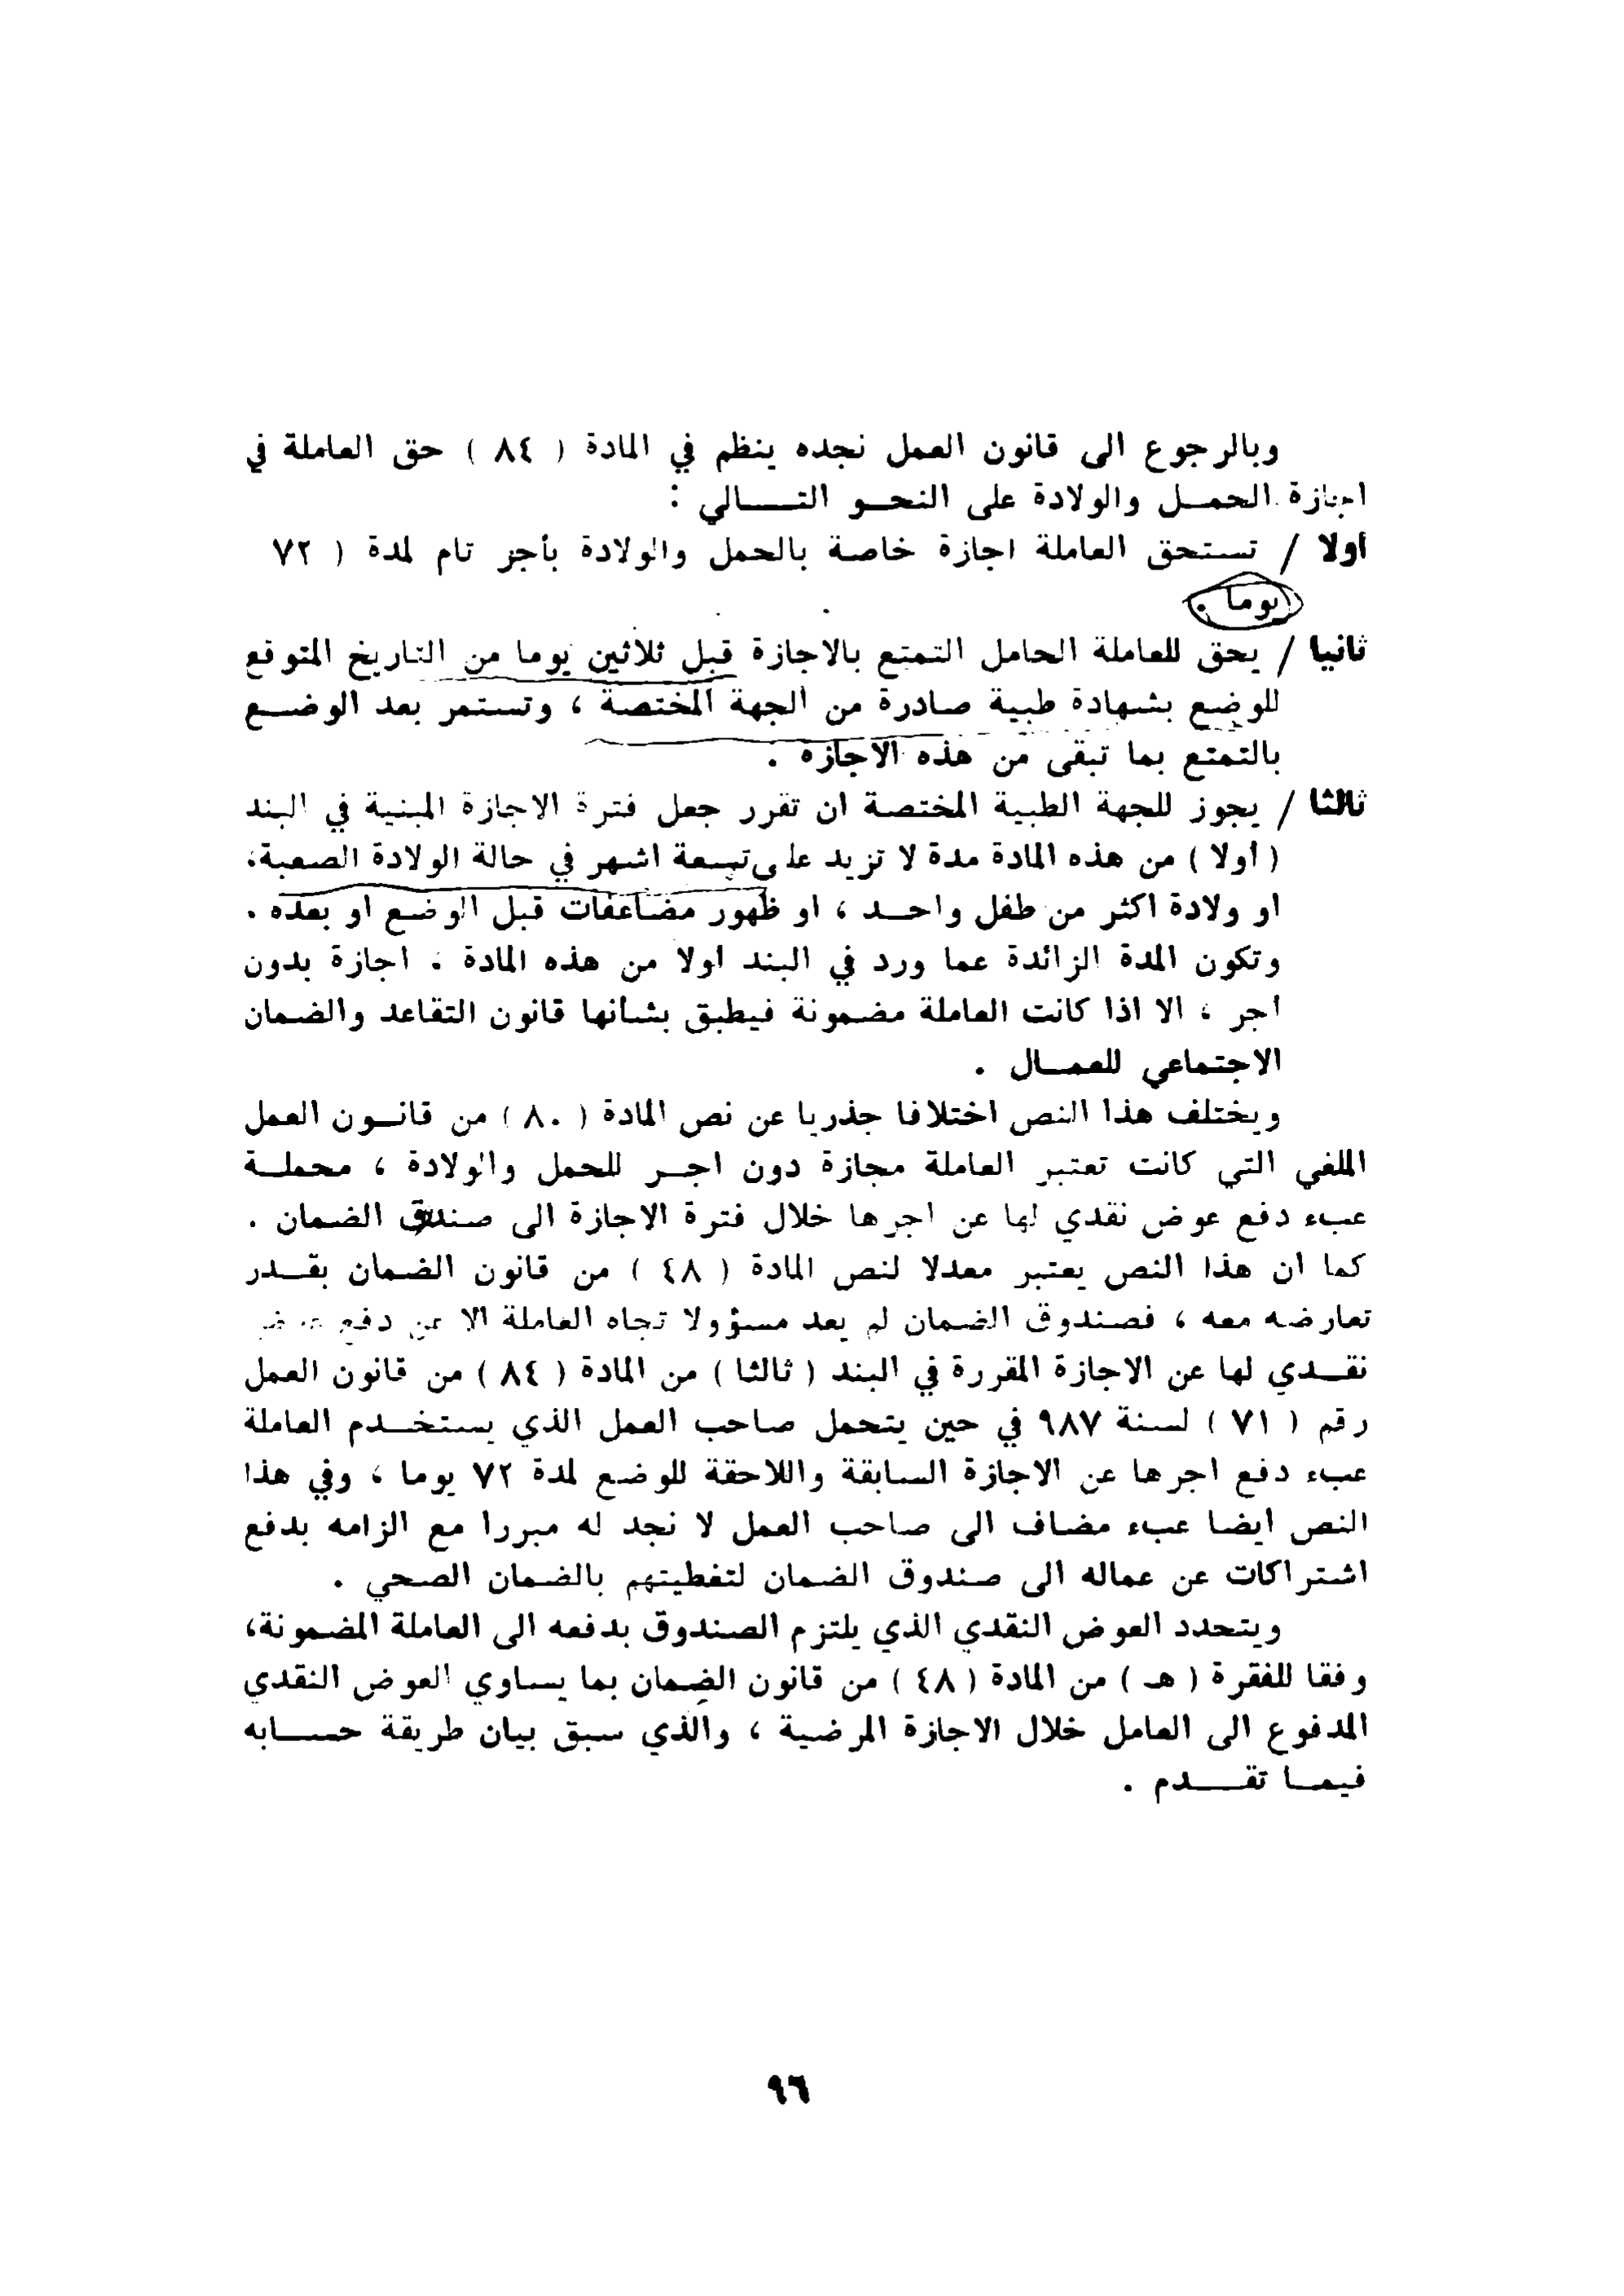 وبالرجوع الى قانون العمل نجده ينظم في المادة ( ٨٤ ) حق العاملة في
اجازة الحمــل والولادة على النحــو التـــالي :
أولا / تستحق العاملة اجازة خاصة بالحمل والولادة بأجر تام لمدة ( ٧٢
يوما .
ثانيا / يحق للعاملة الحامل التمتع بالاجازة قبل ثلاثين يوما من التاريخ المتوقع
للوضع بشهادة طبية صادرة من الجهة المختصة ، وتستمر بعد الوضــع
بالتمتع بما تبقى من هذه الاجازة .
ثالثا / يجوز للجهة الطبية المختصة ان تقرر جعل فترة الاجازة المبنية في البند
( أولا ) من هذه المادة مدة لا تزيد على تسعة اشهر في حالة الولادة الصعبة،
او ولادة اكثر من طفل واحــد ، او ظهور مضاعفات قبل الوضع او بعده .
وتكون المدة الزائدة عما ورد في البند اولا من هذه المادة . اجازة بدون
اجر ، الا اذا كانت العاملة مضمونة فيطبق بشأنها قانون التقاعد والضمان
الاجتماعي للعمــال .
ويختلف هذا النص اختلافا جذريا عن نص المادة ( ٨٠ ) من قانــون العمل
الملغي التي كانت تعتبر العاملة مجازة دون اجــر للحمل والولادة ، محملــة
عبء دفع عوض نقدي لها عن اجرها خلال فترة الاجازة الى صندوق الضمان .
كما ان هذا النص يعتبر معدلا لنص المادة ( ٤٨ ) من قانون الضمان بقــدر
تعارضه معه ، فصندوق الضمان لم يعد مسؤولا تجاه العاملة الا عن دفع عوض
نقــدي لها عن الاجازة المقررة في البند ( ثالثا ) من المادة ( ٨٤ ) من قانون العمل
رقم ( ٧١ ) لسنة ٩٨٧ في حين يتحمل صاحب العمل الذي يستخــدم العاملة
عبء دفع اجرها عن الاجازة السابقة واللاحقة للوضع لمدة ٧٢ يوما ، وفي هذا
النص ايضا عبء مضاف الى صاحب العمل لا نجد له مبررا مع الزامه بدفع
اشتراكات عن عماله الى صندوق الضمان لتغطيتهم بالضمان الصحي .
ويتحدد العوض النقدي الذي يلتزم الصندوق بدفعه الى العاملة المضمونة،
وفقا للفقرة ( هـ ) من المادة ( ٤٨ ) من قانون الضمان بما يساوي العوض النقدي
المدفوع الى العامل خلال الاجازة المرضية ، والذي سبق بيان طريقة حســـابه
فيمــا تقـــدم .
٩٦